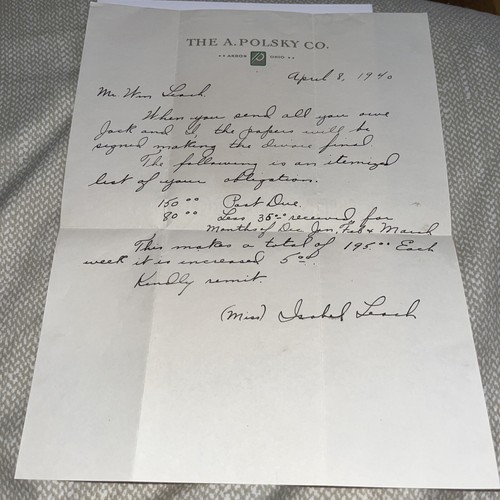 THE A. POLSKY CO.
•• AKRON P OHIO ••
April 8, 1940
Mr. Wm Leach
When you send all you owe
Jack and I, the papers will be
signed making the divorce final
The following is an itemized
list of your obligation.
150⁰⁰ Past Due.
80⁰⁰ Less 35⁰⁰ received for
Months of Dec Jan, Feb & March
This makes a total of 195⁰⁰ Each
week it is increased 5⁰⁰.
Kindly remit.
(Miss) Isabel Leach